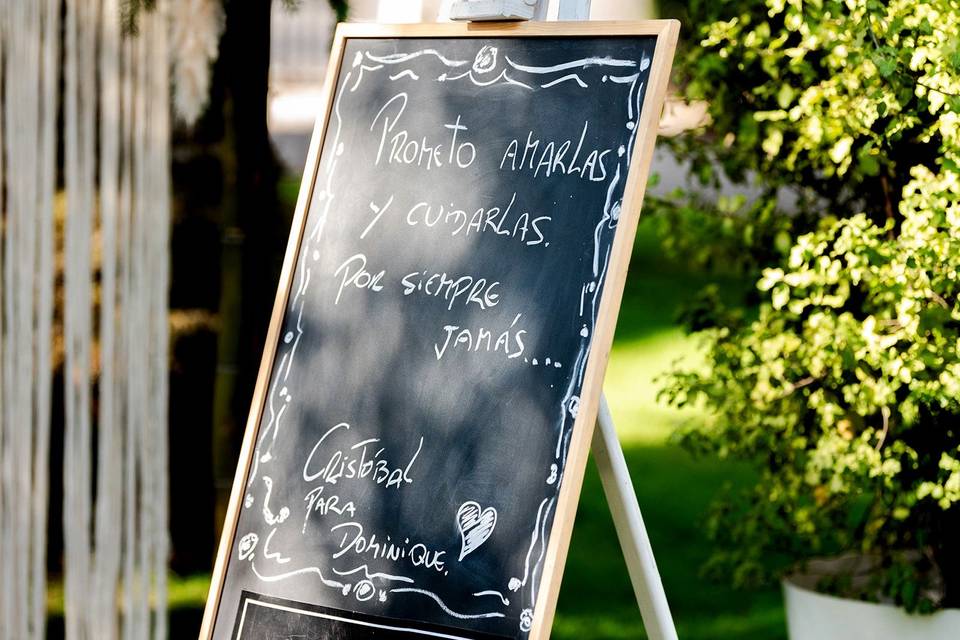 PROMETO AMARLAS
Y CUIDARLAS.
POR SIEMPRE
JAMÁS....
CRISTÓBAL
PARA
DOMINIQUE.